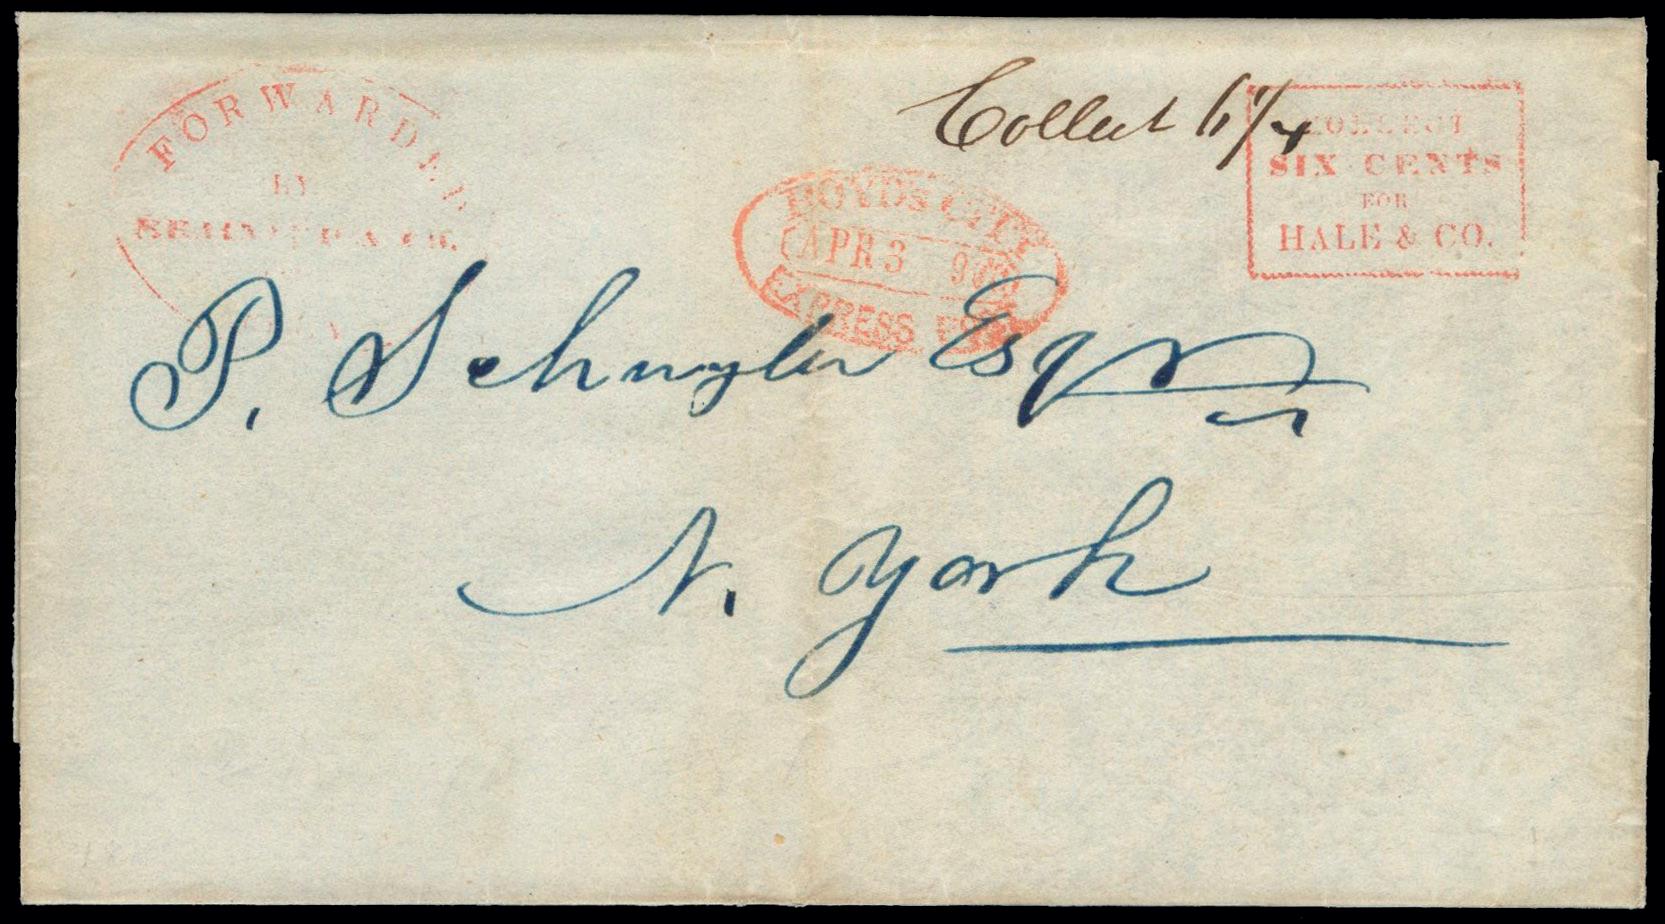 FORWARDED
BY
& CO.
Collect 6 1/4
COLLECT
SIX CENTS
FOR
HALE & CO.
BOYD'S CITY
APR 3 9
EXPRESS POST
P. Schuyler Esqr
N. York